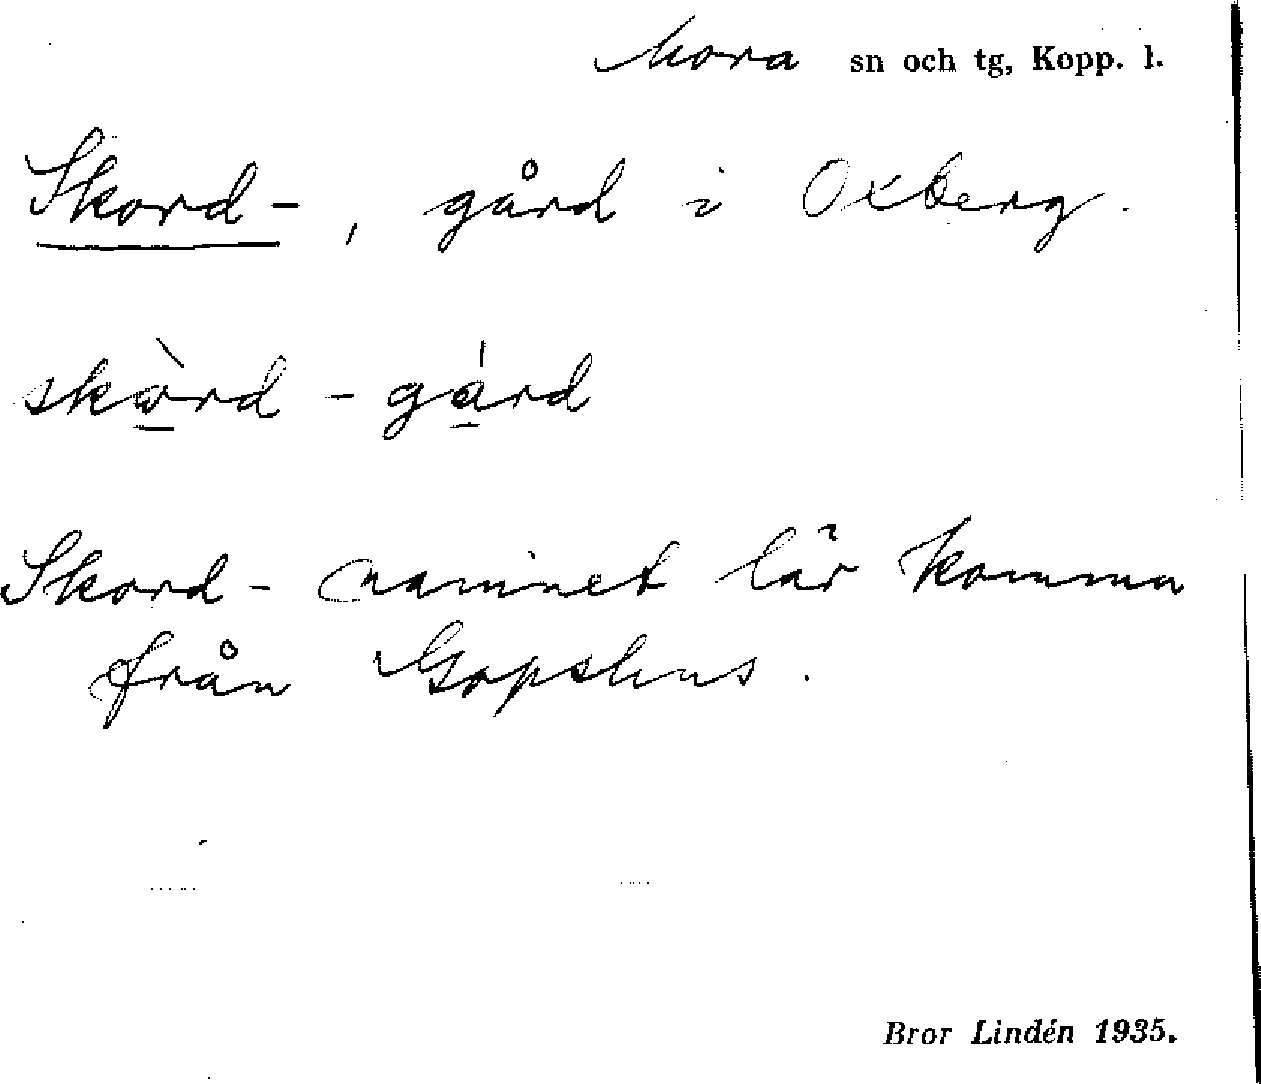 Mora sn och tg, Kopp. l.
Skord-, gård i Oxberg.
skòrd - gárd
Skord- namnet lär komma
från Gopshus.
Bror Lindén 1935.